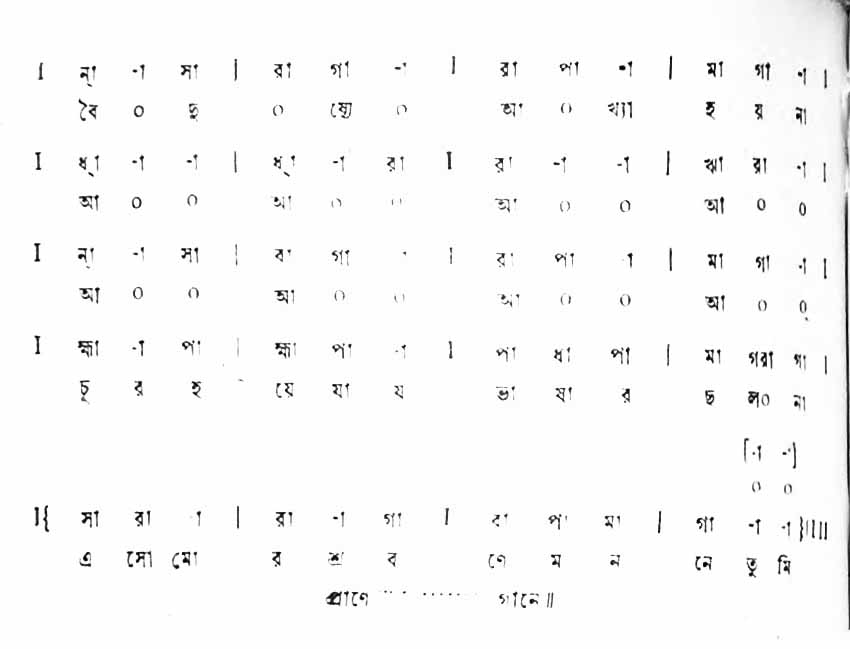 I ন্‌া -া সা | রা গা -া I রা পা -া | মা গা -া |
বৈ ০ দু ০ ষ্যে ০ আ ০ খ্যা হ য় না
I ধ্‌া -া -া | ধ্‌া -া রা I রা -া -া | ঋা রা -া |
আ ০ ০ আ ০ ০ আ ০ ০ আ ০ ০
I ন্‌া -া সা | রা গা -া I রা পা -া | মা গা -া |
আ ০ ০ আ ০ ০ আ ০ ০ আ ০ ০
I হ্মা -া পা | হ্মা পা -া I পা ধা পা | মা গরা গা |
চূ র হ য়ে যা য ভা ষা র ছ ল০ না
[-া -া]
০ ০
I{ সা রা -া | রা -া গা I রা পা মা | গা -া -া }IIII
এ সো মো র শ্র ব ণে ম ন নে তু মি
প্রাণে ............ গানে॥